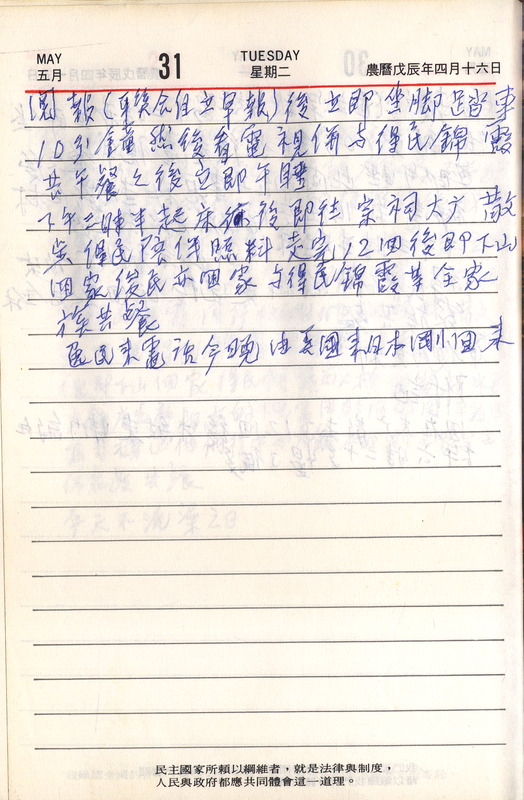 MAY 31 TUESDAY
五月 星期二 農曆戊辰年四月十六日
報(聯合自立早報)後立即坐脚踏車
10分鐘然後看電視併与得民錦霞
共午餐之後立即午睡
下午三時半起床後即往宗祠大广散
得民陪伴照料走完12回後即下山
回家俊民亦回家与得民錦霞等全家
族共餐
民來電話今晚由美國來日本 回來
民主國家所賴以綱維者，就是法律與制度，
人民與政府都應共同體會這一道理。